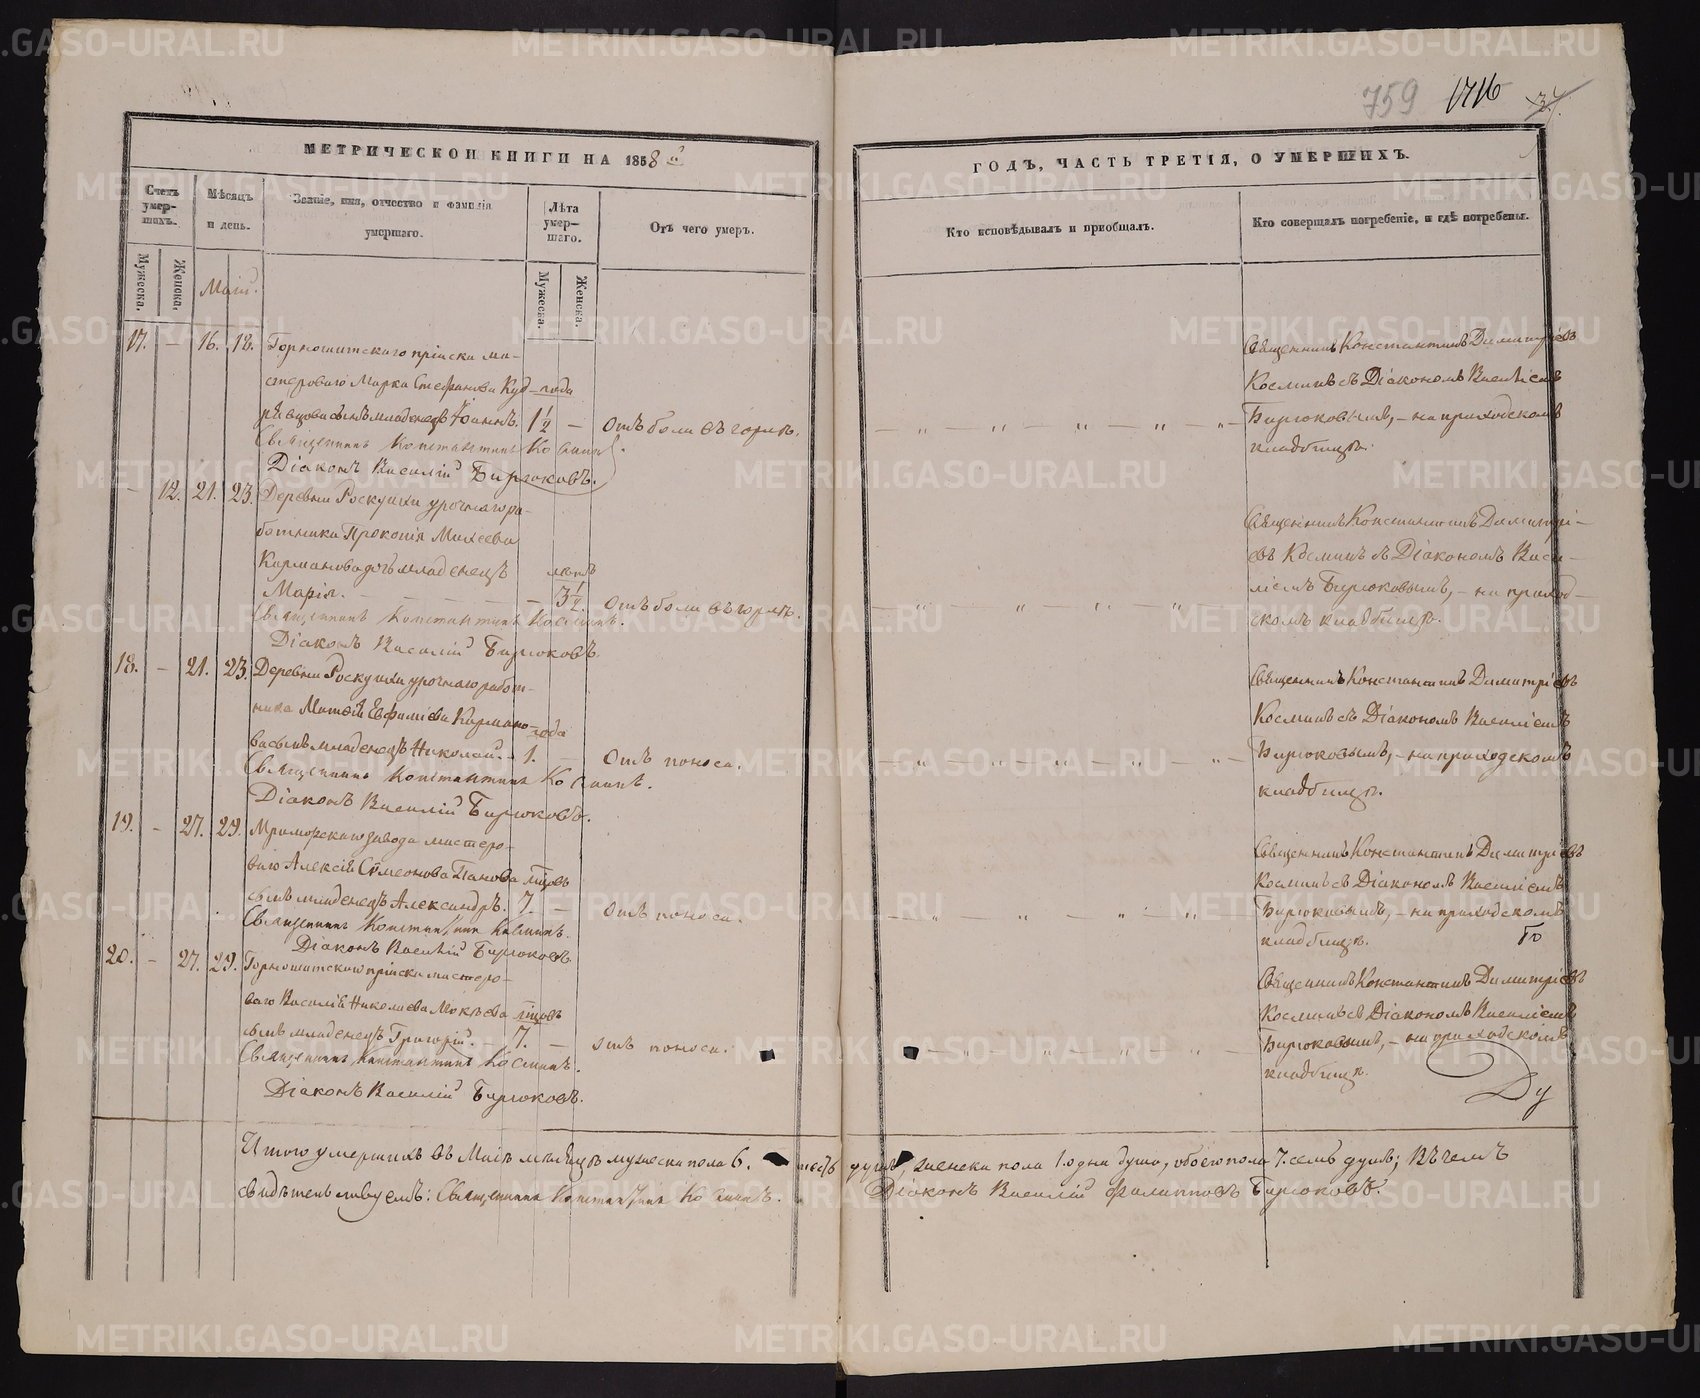 759 1716 37.
МЕТРИЧЕСКОЙ КНИГИ НА 1858й
ГОДЪ, ЧАСТЬ ТРЕТІЯ, О УМЕРШИХЪ.
Счетъ умер-шихъ.
Мужеска.
Женска.
Мѣсяцъ и день.
Званіе, имя, отчество и фамилія умершаго.
Лѣта умер-шаго.
Мужеска.
Женска.
Отъ чего умеръ.
Кто исповѣдывалъ и пріобщалъ.
Кто совершалъ погребеніе, и гдѣ погребены.
Маій.
17. – 16. 18. Горнощитскаго пріиска ма-
стероваго Марка Стефанова Куд- года
рявцова сынъ младенецъ Іоаннъ. 1 1/2 – Отъ боли въ горлѣ.
Священникъ Константинъ Косминъ.
Діаконъ Василій Бирюковъ.
Священникъ Константинъ Димитріевъ
Косминъ съ Діакономъ Василіемъ
Бирюковымъ, – на приходскомъ
кладбищѣ.
– 12. 21. 23. Деревни Роскуихи урочнаго ра-
ботника Прокопія Михеева
Карманова дочь младенецъ лѣтъ
Марія. – 3 1/2. Отъ боли въ горлѣ.
Священникъ Константинъ Косминъ.
Діаконъ Василій Бирюковъ.
Священникъ Константинъ Димитрі-
евъ Косминъ съ Діакономъ Васи-
ліемъ Бирюковымъ, – на приход-
скомъ кладбищѣ.
18. – 21. 23. Деревни Роскуихи урочнаго работ-
ника Матѳія Евфиміева Кармано- года
ва сынъ младенецъ Николай. – 1. Отъ поноса.
Священникъ Константинъ Косминъ.
Діаконъ Василій Бирюковъ.
Священникъ Константинъ Димитріевъ
Косминъ съ Діакономъ Василіемъ
Бирюковымъ, – на приходскомъ
кладбищѣ.
19. – 27. 29. Мраморскаго завода мастеро-
ваго Алексія Симеонова Панова мѣсцовъ
сынъ младенецъ Александръ. 7. – Отъ поноса.
Священникъ Константинъ Косминъ.
Діаконъ Василій Бирюковъ.
Священникъ Константинъ Димитріевъ
Косминъ съ Діакономъ Василіемъ
Бирюковымъ, – на приходскомъ
кладбищѣ.
20. – 27. 29. Горнощитскаго пріиска мастеро-
ваго Василія Николаева Мокѣева мѣсцовъ
сынъ младенецъ Григорій. – 7. – отъ поноса.
Священникъ Константинъ Косминъ.
Діаконъ Василій Бирюковъ.
Священникъ Константинъ Димитріевъ
Косминъ съ Діакономъ Василіемъ
Бирюковымъ, – на приходскомъ
кладбищѣ.
Итого умершихъ въ Маіѣ мѣсяцѣ мужеска пола 6. шесть душъ, женска пола 1. одна душа, обоего пола 7. семь душъ; въ чемъ
свидѣтельствуемъ: Священникъ Константинъ Косминъ. Діаконъ Василій Филипповъ Бирюковъ.
METRIKI.GASO-URAL.RU